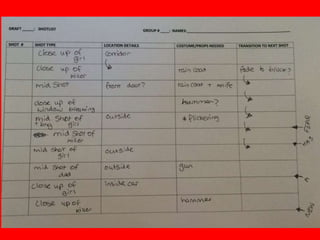 DRAFT ____: SHOTLIST GROUP # ____: NAMES:
SHOT # SHOT TYPE LOCATION DETAILS COSTUME/PROPS NEEDED TRANSITION TO NEXT SHOT
close up of girl corridor
close up of killer raincoat fade to black?
mid shot front door? raincoat + knife
close up of window hammer?
mid shot of girl outside * flickering
mid shot of killer
mid shot of girl outside
mid shot of dad outside gun
close up of girl inside car
close up of killer hammer